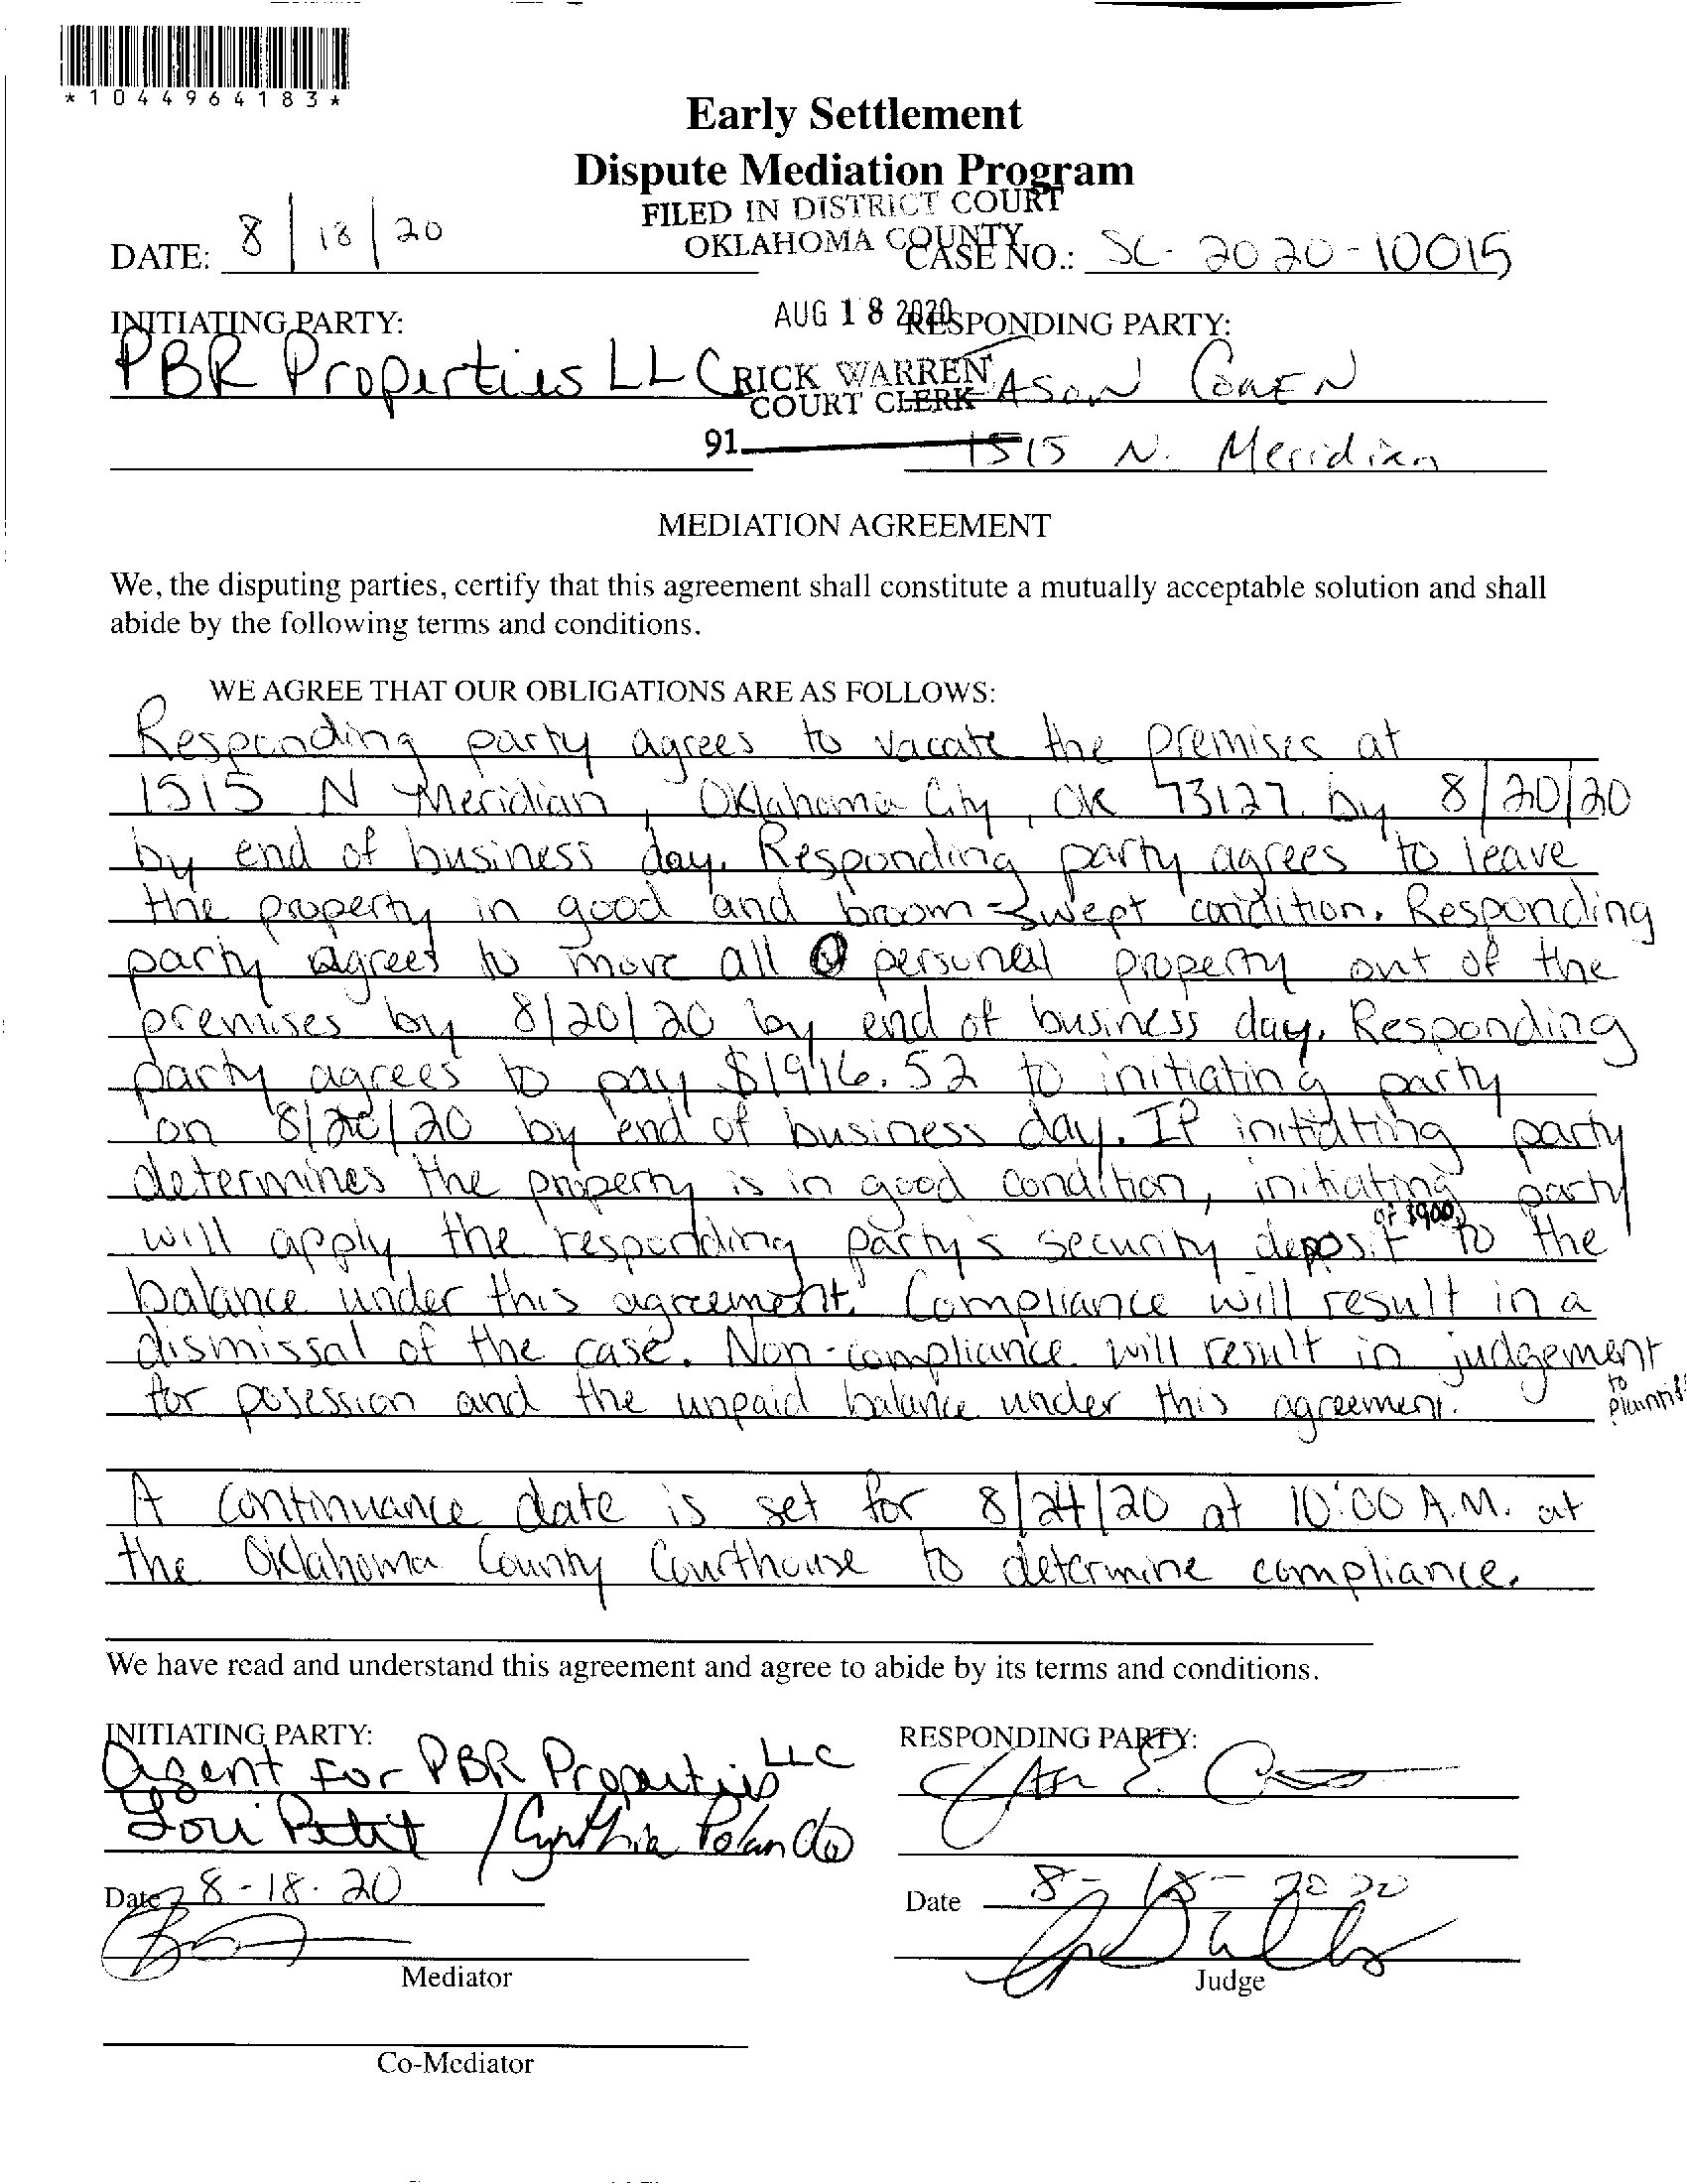 *1044964183*
Early Settlement
Dispute Mediation Program
FILED IN DISTRICT COURT
OKLAHOMA COUNTY
DATE: 8/18/20
CASE NO.: SC-2020-10015
AUG 18 2020
INITIATING PARTY:
RESPONDING PARTY:
PBR Properties LLC
RICK WARREN
COURT CLERK
JASON
91
1515 N. Meridian
MEDIATION AGREEMENT
We, the disputing parties, certify that this agreement shall constitute a mutually acceptable solution and shall
abide by the following terms and conditions.
WE AGREE THAT OUR OBLIGATIONS ARE AS FOLLOWS:
Responding party agrees to vacate the premises at
1515 N Meridian, Oklahoma City, OK 73127. by 8/20/20
by end of business day. Responding party agrees to leave
the property in good and broom-swept condition. Responding
party agrees to move all personal property out of the
premises by 8/20/20 by end of business day. Responding
party agrees to pay to initiating party
on 8/20/20 by end of business day. If initiating party
determines the property is in good condition, initiating party
will apply the responding party's security deposit of $900 to the
balance under this agreement. Compliance will result in a
dismissal of the case. Non-compliance will result in judgement
to plaintiff
for posession and the unpaid balance under this agreement.
A continuance date is set for 8/24/20 at 10:00 A.M. at
the Oklahoma County Courthouse to determine compliance.
We have read and understand this agreement and agree to abide by its terms and conditions.
INITIATING PARTY:
RESPONDING PARTY:
Agent for PBR Properties LLC
Lori Petit / Cynthia Polando
Date 8-18-20
Date 8-18-2020
Mediator
Judge
Co-Mediator